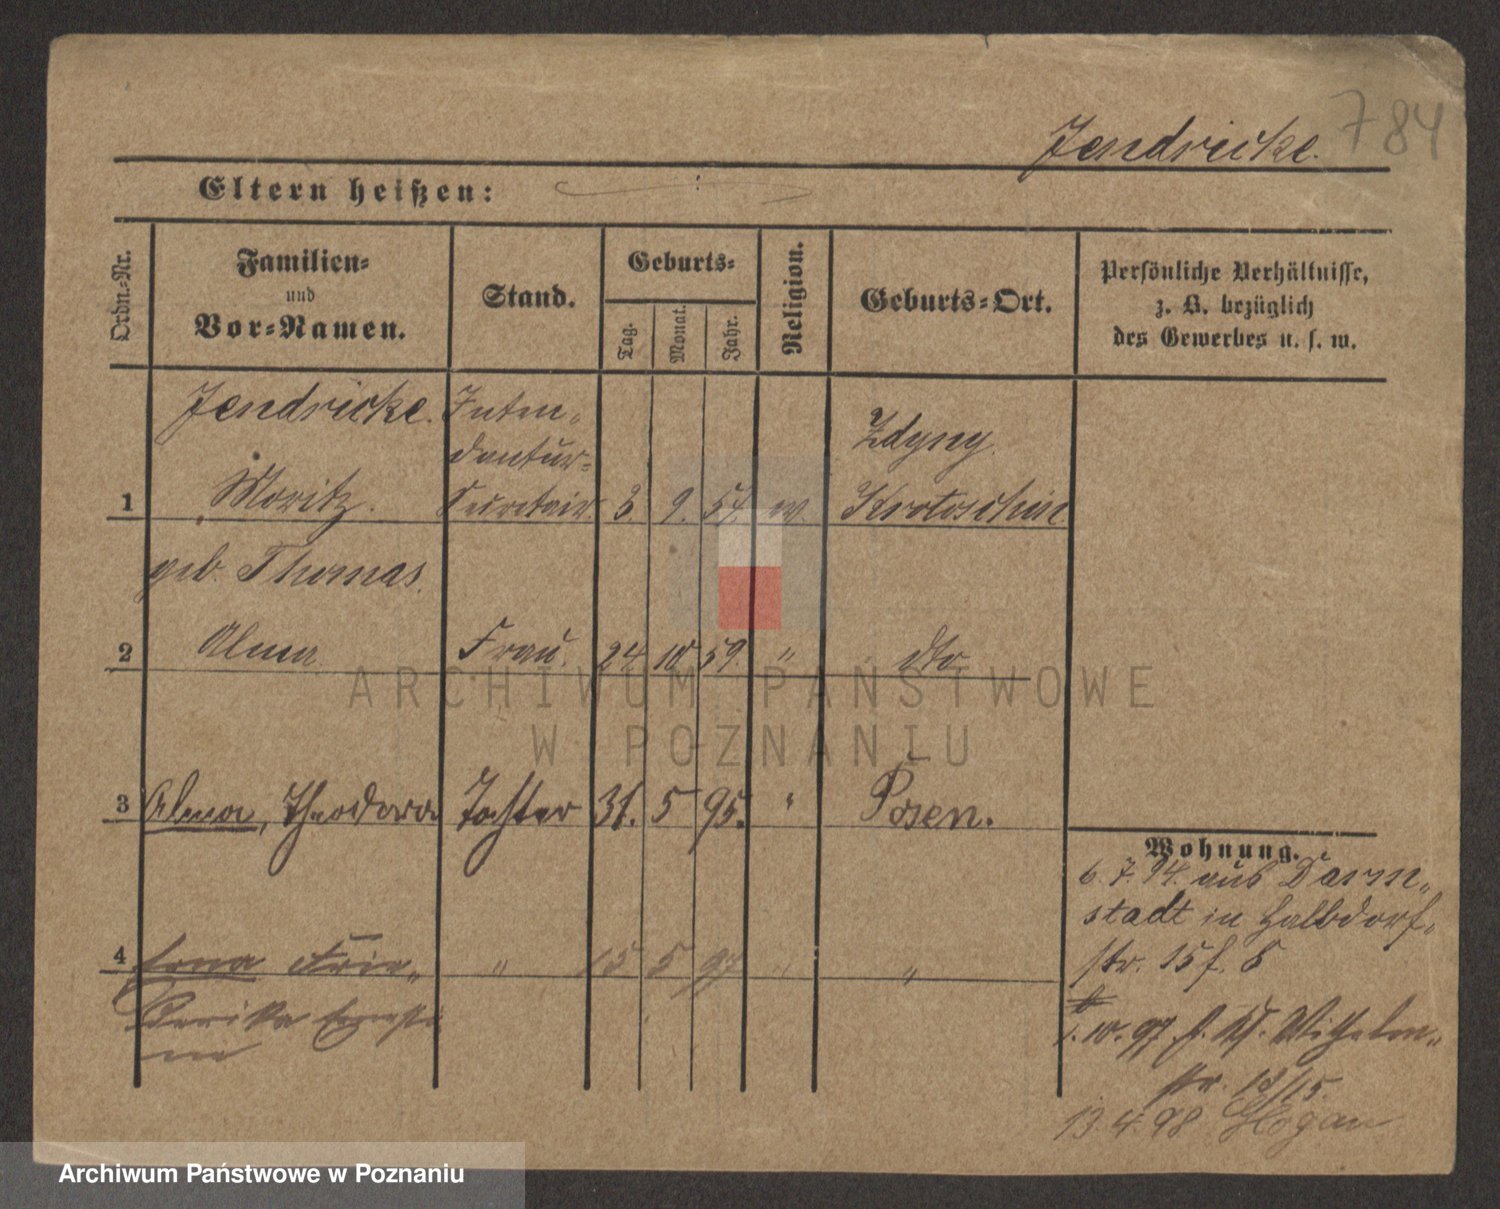 784
Jendricke.
Eltern heißen:
Ordn.-Nr.
Familien-
und
Vor-Namen.
Stand.
Geburts-
Tag.
Monat.
Jahr.
Religion.
Geburts-Ort.
Persönliche Verhältnisse,
z. B. bezüglich
des Gewerbes u. s. w.
Jendricke. Inten-
dantur- Zdyny
1 Moritz. Secretair. 3. 9. 57. ev. Krotoschin
geb. Thomas.
2 Alma Frau. 24. 10 59. " dto
3 Alma, Theodora Tochter 31. 5 95. " Posen.
Wohnung.
6. 7. 94. aus Darm-
stadt in Halbdorf-
4 Erna Frie- " 15 5 97 " " str. 15
derike Ernesti
ne
1. 10. 97. Wilhelm-
str. 13/15.
13.4.98 Glogau
ARCHIWUM PAŃSTWOWE
W POZNANIU
Archiwum Państwowe w Poznaniu